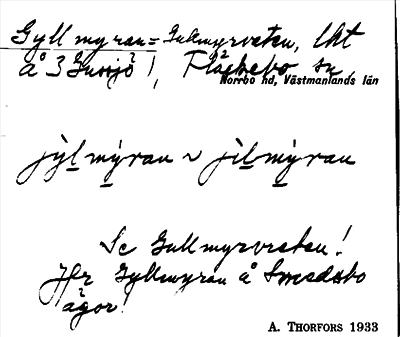 Gyllmyran = Gullmyrvreten, lht
å 3 Gusjö !, Fläckebo sn
Norrbo hd, Västmanlands län
jỳl mỳran ~ jìl mỳran
Se Gullmyrvreten!
Jfr Gyllmyran å Smedsbo
ägor!
A. THORFORS 1933